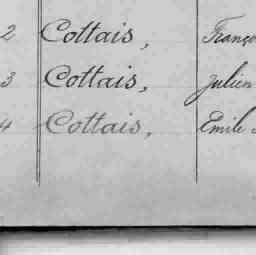 2 Cottais, Franço
3 Cottais, Julien
4 Cottais, Emile